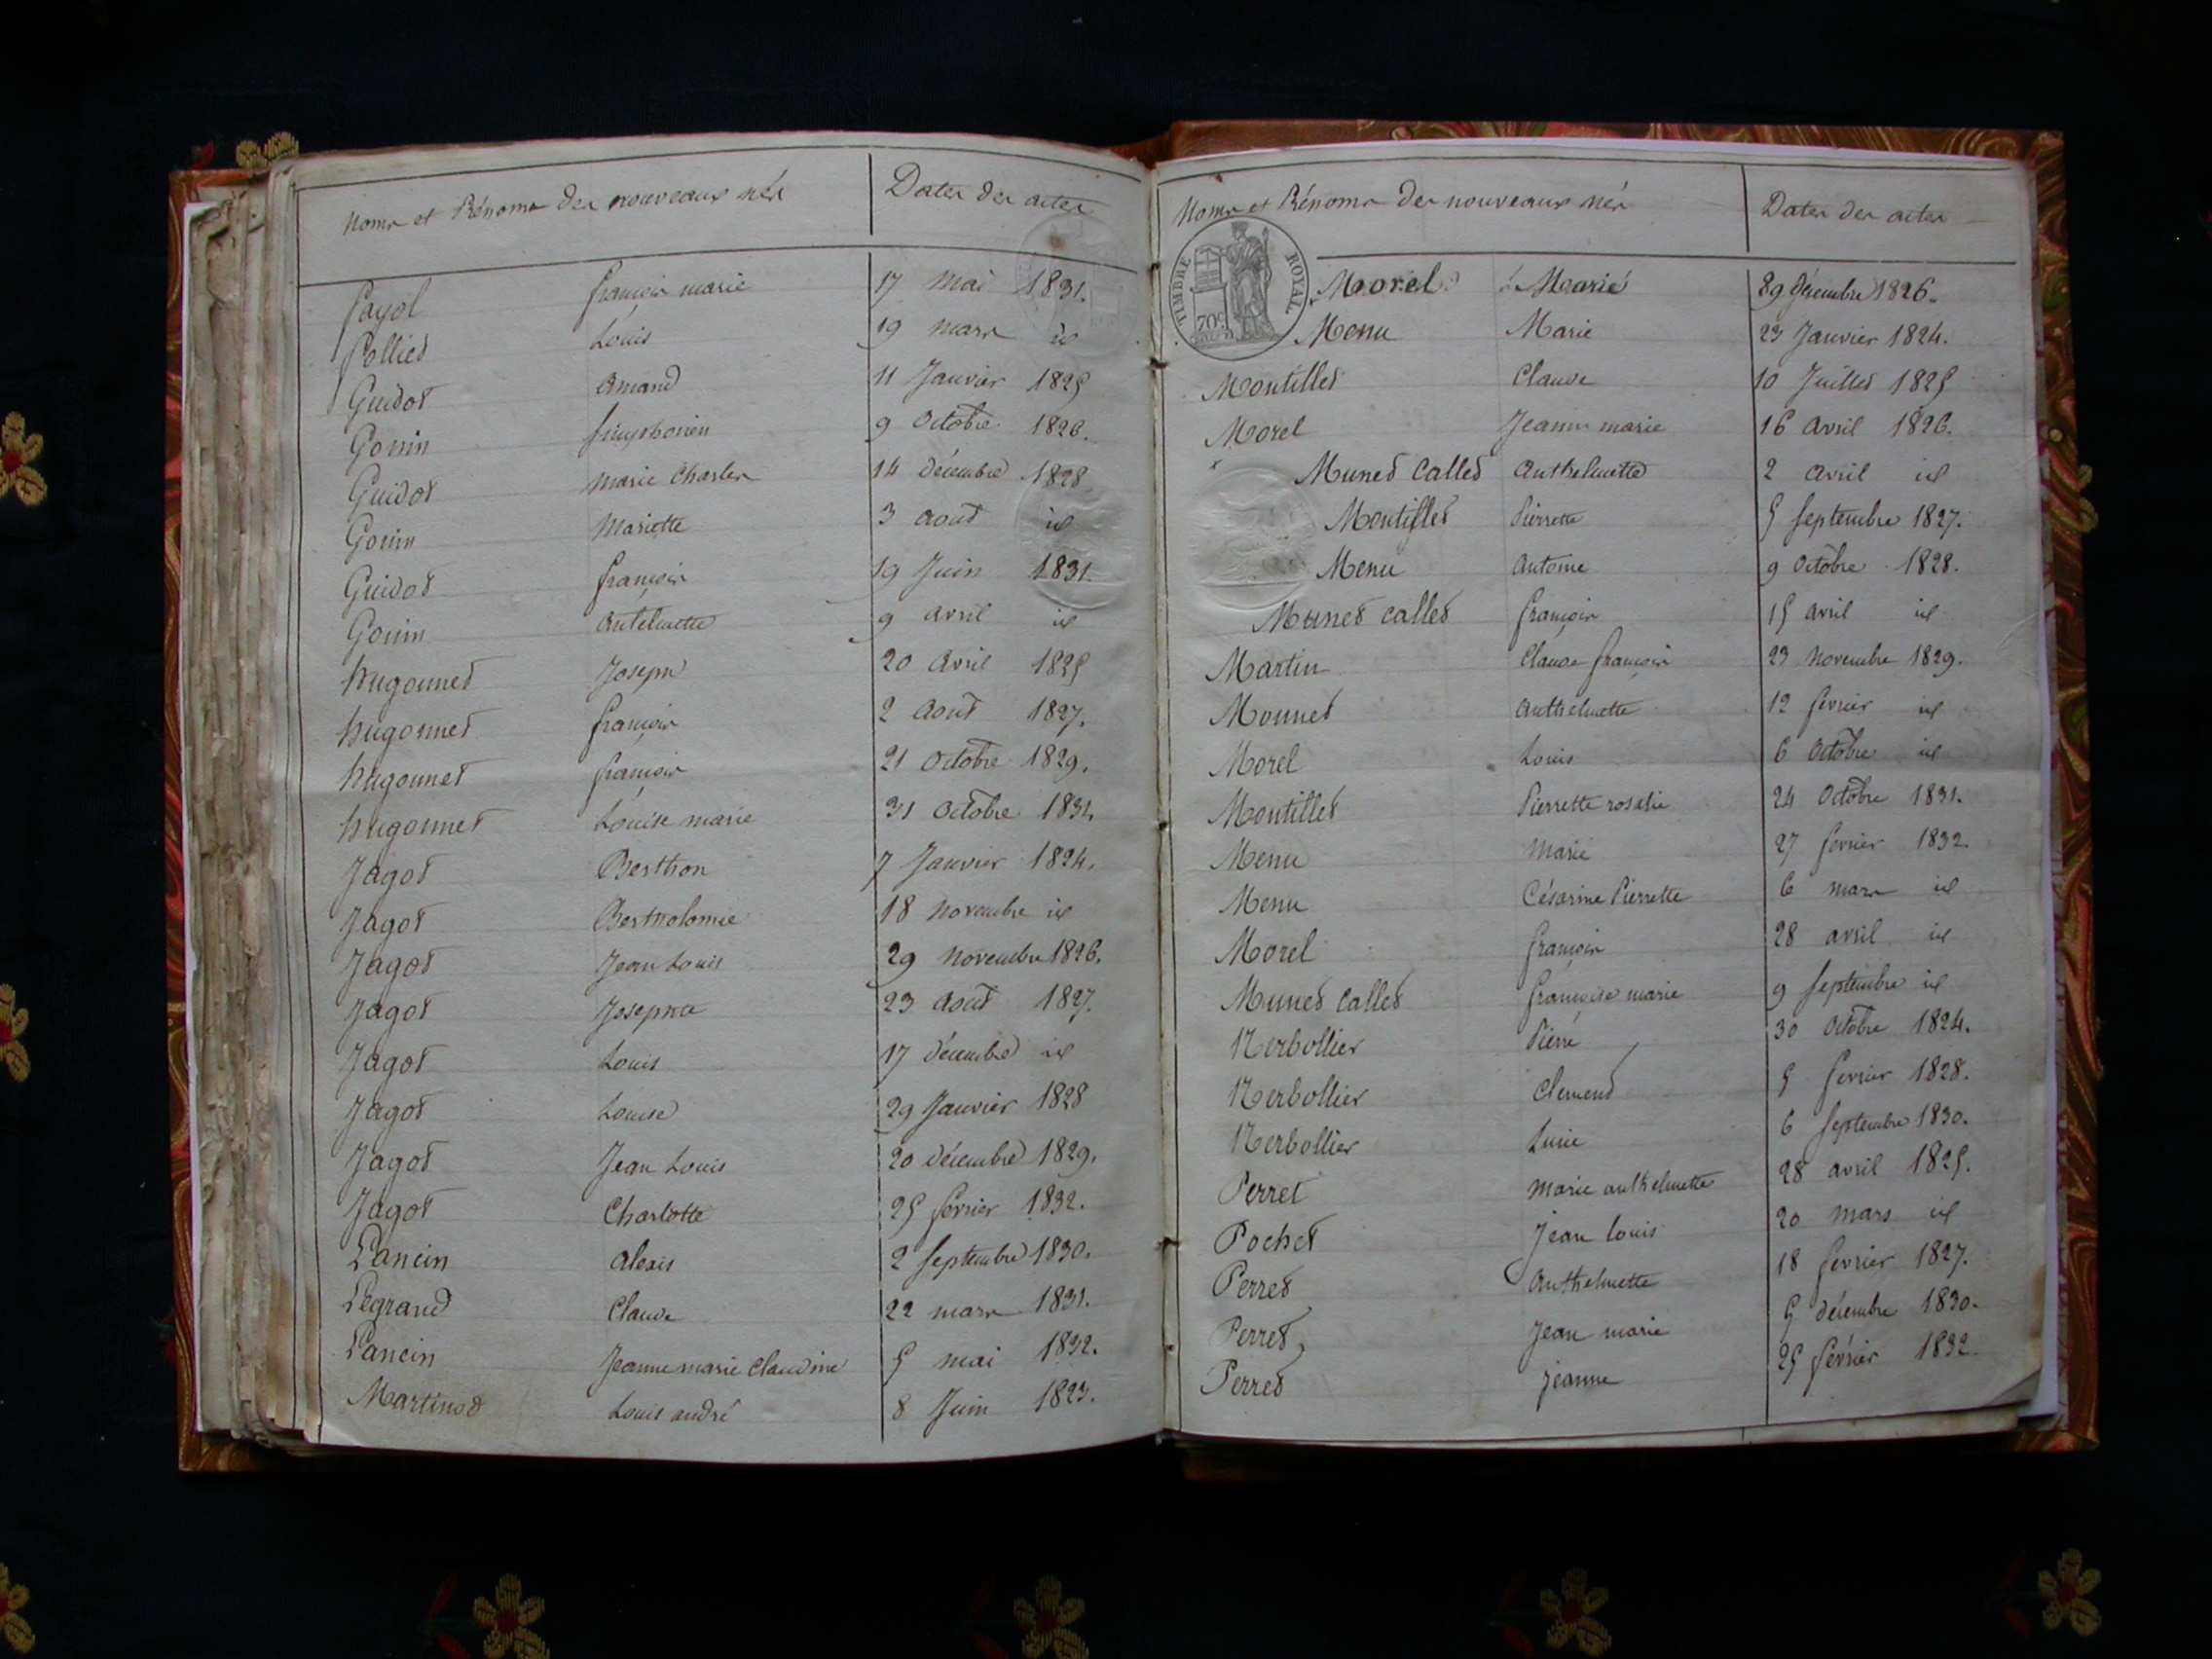 Noms et Prénoms des nouveaux nés Dates des actes
Fayol françois marie 17 mai 1831.
Follied Louis 19 mars id
Guidot Amand 11 Janvier 1825
Gonin Simphorien 9 Octobre 1826.
Guidot Marie Charles 14 décembre 1828
Gonin Mariette 3 aout id
Guidot françois 19 Juin 1831.
Gonin Antelmette 9 avril id
hugonnet Joseph 20 avril 1825
hugonnet françois 2 aout 1827.
hugonnet françois 21 Octobre 1829.
hugonnet Louise marie 31 Octobre 1831.
Jagot Berthon 7 Janvier 1824.
Jagot Bertholomie 18 novembre id
Jagot Jean Louis 29 novembre 1826.
Jagot Josephte 23 aout 1827.
Jagot Louis 17 décembre id
Jagot Louise 29 Janvier 1828
Jagot Jean Louis 20 décembre 1829.
Jagot Charlotte 25 février 1832.
Lancin alexis 2 septembre 1830.
Legrand Claude 22 mars 1831.
Lancin Jeanne marie Claudine 5 mai 1832.
Martinod Louis andré 8 Juin 1823.
Noms et Prénoms des nouveaux nés Dates des actes
TIMBRE ROYAL
70c
Morel Marie décembre 1826.
Menu Marie 23 Janvier 1824.
Montillet Claude 10 Juillet 1825
Morel Jeanne marie 16 avril 1826.
Munet Callet Anthelmette 2 avril id
Montillet Pierrette 5 septembre 1827.
Menu Antoine 9 Octobre 1828.
Munet callet françois 15 avril id
Martin Claude françois 23 novembre 1829.
Monnet Anthelmette 12 février id
Morel Louis 6 Octobre id
Montillet Pierrette rosalie 24 Octobre 1831.
Menu Marie 27 fevrier 1832.
Menu Césarine Pierrette 6 mars id
Morel françois 28 avril id
Munet Callet françoise marie 9 septembre id
Nerbollier Pierre 30 Octobre 1824.
Nerbollier Clement 5 fevrier 1828.
Nerbollier Lucie 6 septembre 1830.
Perret Marie anthelmette 28 avril 1825.
Pochet Jean louis 20 mars id
Perret Anthelmette 18 fevrier 1827.
Perret Jean marie 5 décembre 1830.
Perret jeanne 25 février 1832.